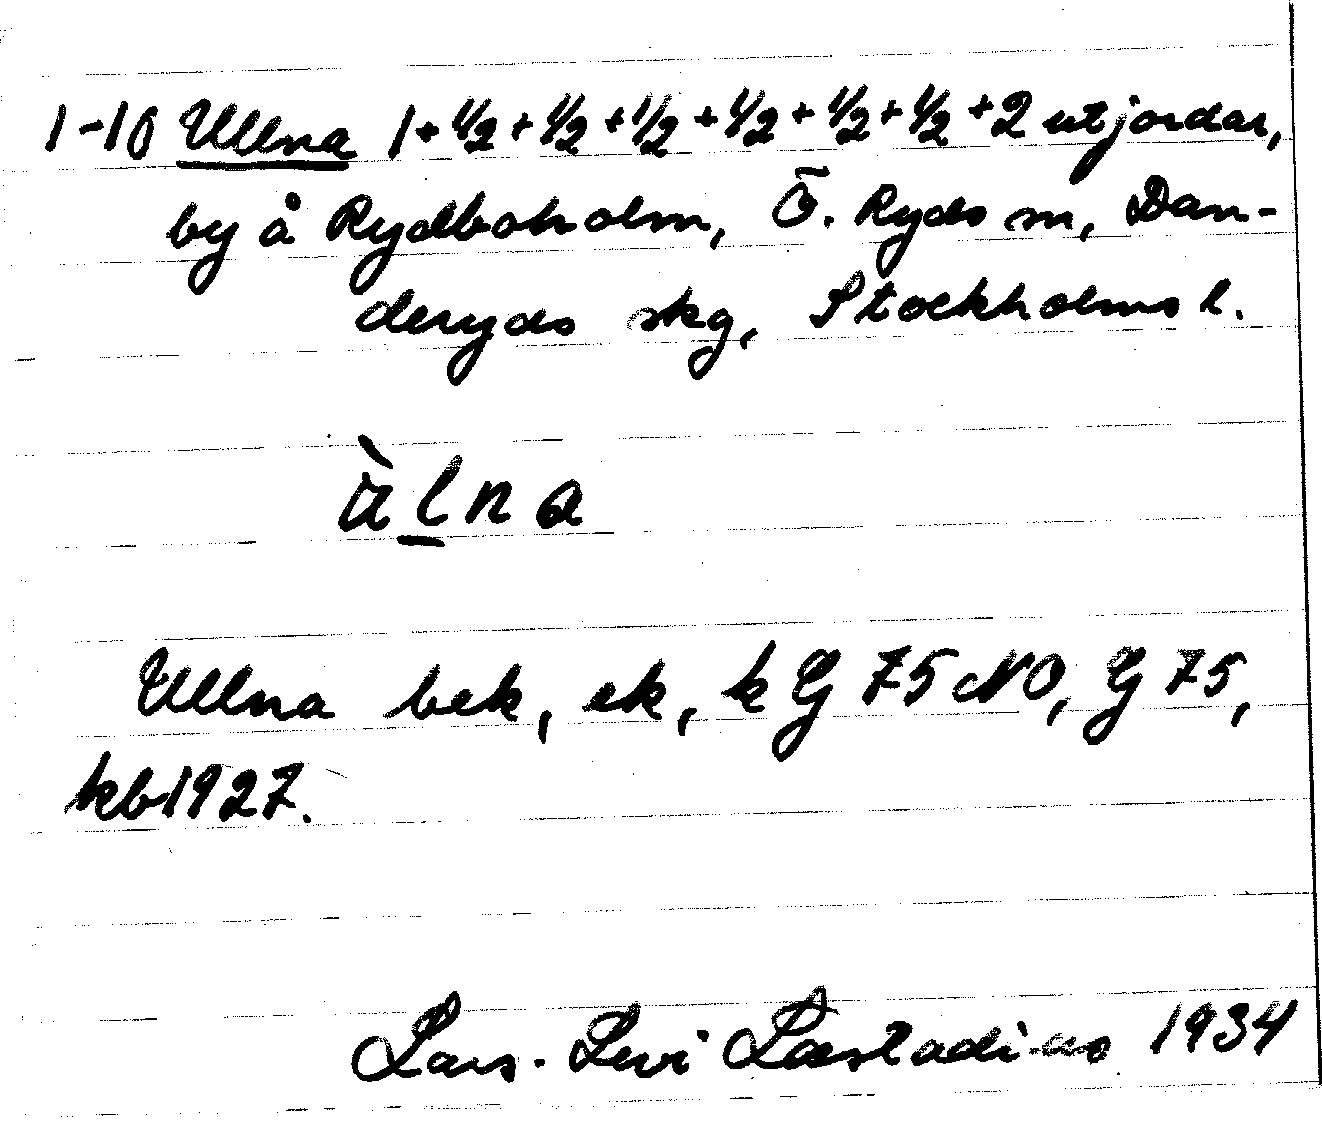 1-10 Ullna 1+1/2+1/2+1/2+1/2+1/2+1/2+2 utjordar,
by å Rydboholm, Ö. Ryds sn, Dan-
deryds skg, Stockholms l.
ùlna
Ullna bek, ek, k G 75 NO, G 75,
kb 1927.
Lars-Levi Læstadius 1934